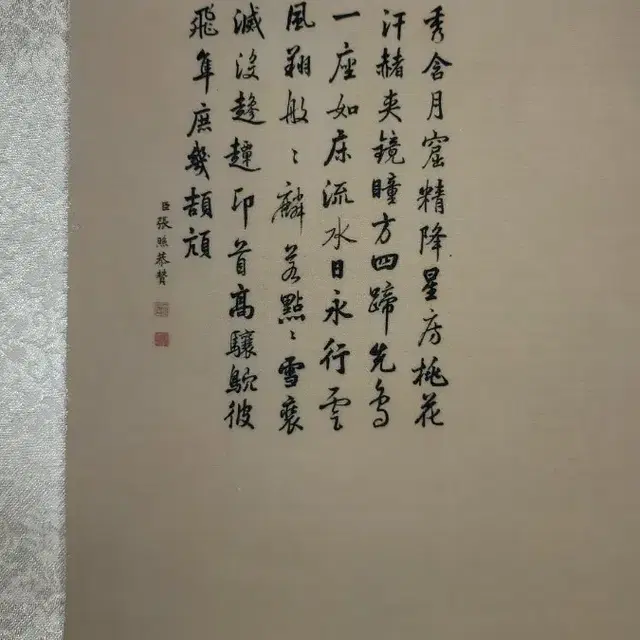 秀含月窟精降星房桃花
汗赭夾鏡瞳方四蹄先鳥
一座如床流水日永行雲
風翔般〻麟若點〻雪
滅沒印首高驤鴥彼
飛隼庶幾頡頏
臣張照恭贊